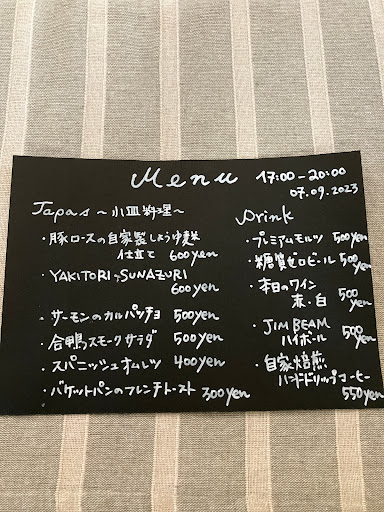 Menu 17:00-20:00
07.09.2023
Tapas ~小皿料理~
・豚ロースの自家製しょうゆ麹
仕立て 600yen
・YAKITORI~SUNAZURI
600yen
・サーモンのカルパッチョ 500yen
・合鴨スモークサラダ 500yen
・スパニッシュオムレツ 400yen
・バゲットパンのフレンチトースト 300yen
Drink
・プレミアムモルツ 500yen
・糖質ゼロビール 500yen
・本日のワイン
赤・白 500yen
・JIM BEAM
ハイボール 500yen
・自家焙煎
ハンドドリップコーヒー
550yen